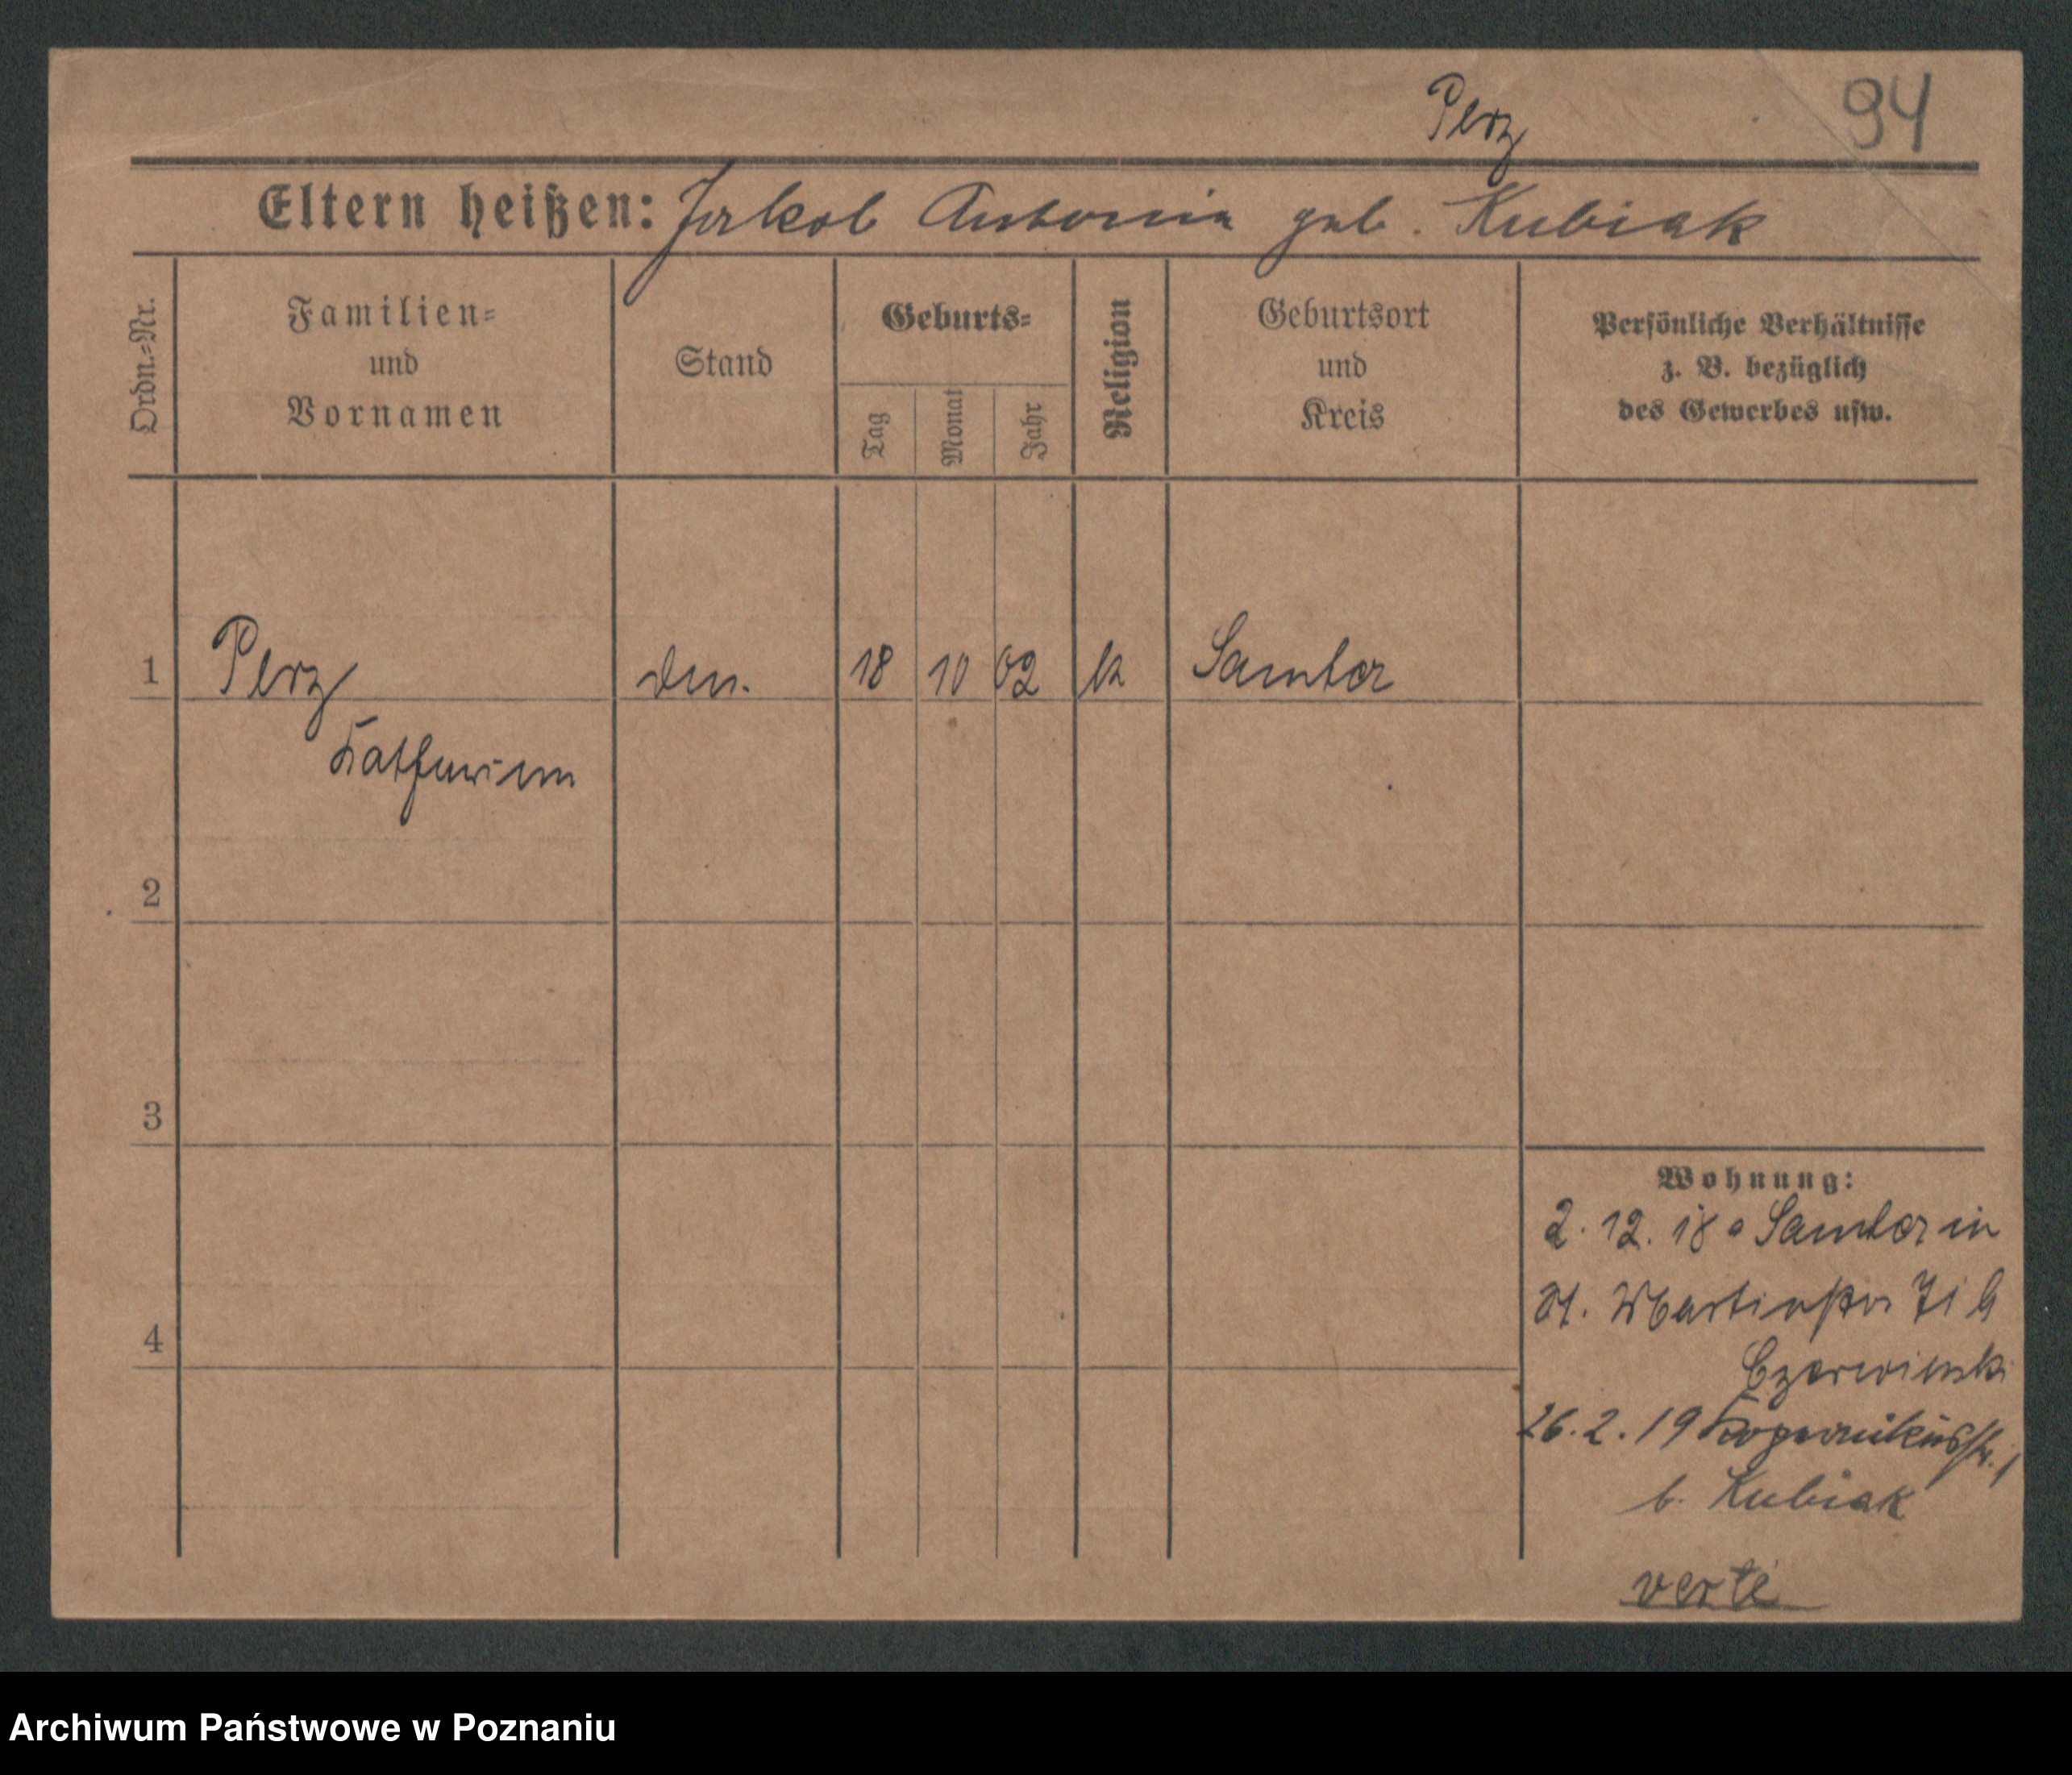 Perz
94
Eltern heißen: Jakob Antonia geb. Kubiak
Ordn.-Nr.
Familien-
und
Vornamen
Stand
Geburts-
Tag
Monat
Jahr
Religion
Geburtsort
und
Kreis
Persönliche Verhältnisse
z. B. bezüglich
des Gewerbes usw.
1 Perz 18 10 02 k Samter
Katharina
2
3
4
Wohnung:
2. 12. 18 a Samter in
St. Martinstr 71 b
Czerwinski
26. 2. 19 Kopernikusstr. 1
b. Kubiak
verte
Archiwum Państwowe w Poznaniu